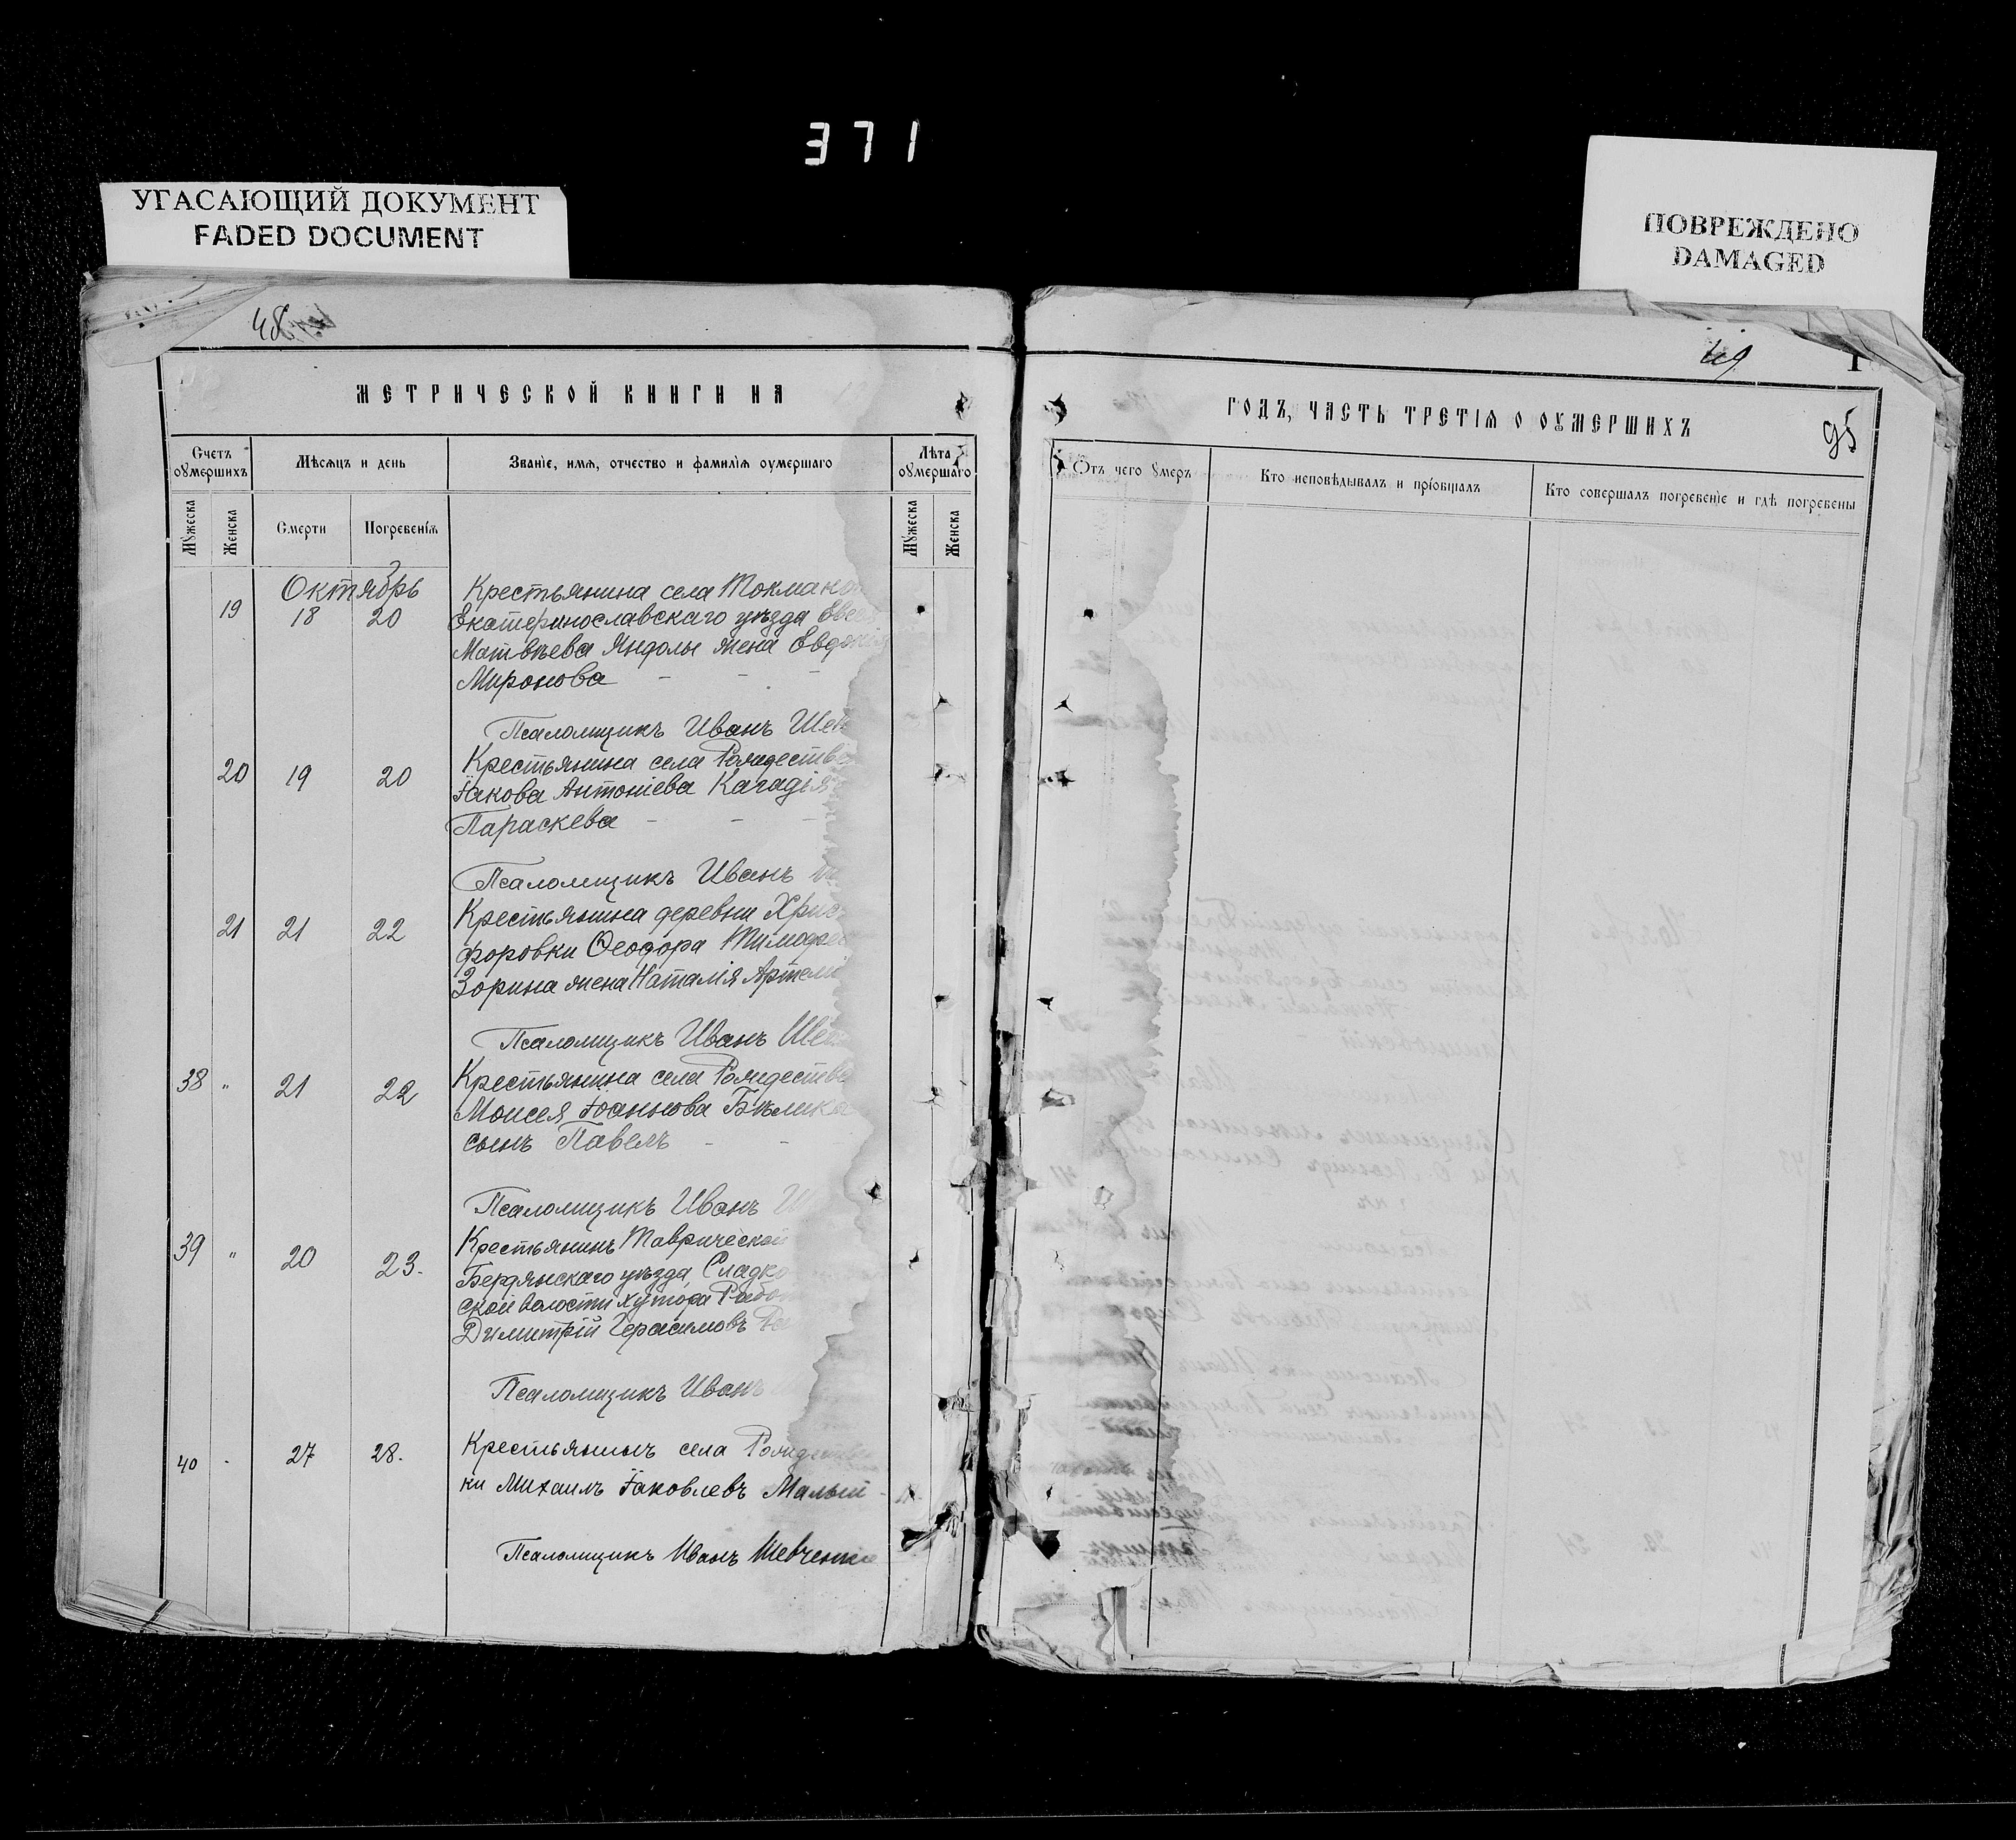 371
УГАСАЮЩИЙ ДОКУМЕНТ
FADED DOCUMENT
ПОВРЕЖДЕНО
DAMAGED
48
МЕТРИЧЕСКОЙ КНИГИ НА
Счетъ оумершихъ
Мѣсяцъ и день
Званіе, имя, отчество и фамилія оумершаго
Лѣта оумершаго
Мужеска
Женска
Смерти
Погребенія
Мужеска
Женска
Октябрь
19 18 20 Крестьянина села Токмако
Екатеринославскаго уѣзда
Матвѣева Яндолы жена Евдокія
Миронова
Псаломщикъ Иванъ Шев
20 19 20 Крестьянина села Рождестве
Іакова Антоніева
Параскева
Псаломщикъ Иванъ
21 21 22 Крестьянина деревни Хрис
форовки Ѳеодора Тимоѳее
Зорина жена Наталія Артемі
Псаломщикъ Иванъ Шев
38 " 21 22 Крестьянина села Рождестве
Моисея Іоаннова Бѣлика
сынъ Павелъ
Псаломщикъ Иванъ Ш
39 " 20 23. Крестьянинъ Таврической
Бердянскаго уѣзда, Сладко
ской волости хутора
Димитрій Герасимовъ
Псаломщикъ Иванъ
40 27 28. Крестьянинъ села Рождествен
ки Михаилъ Іаковлевъ Малый
Псаломщикъ Иванъ Шевченко
49
ГОДЪ, ЧАСТЬ ТРЕТІЯ О ОУМЕРШИХЪ
95
Отъ чего умеръ
Кто исповѣдывалъ и пріобщалъ
Кто совершалъ погребеніе и гдѣ погребены